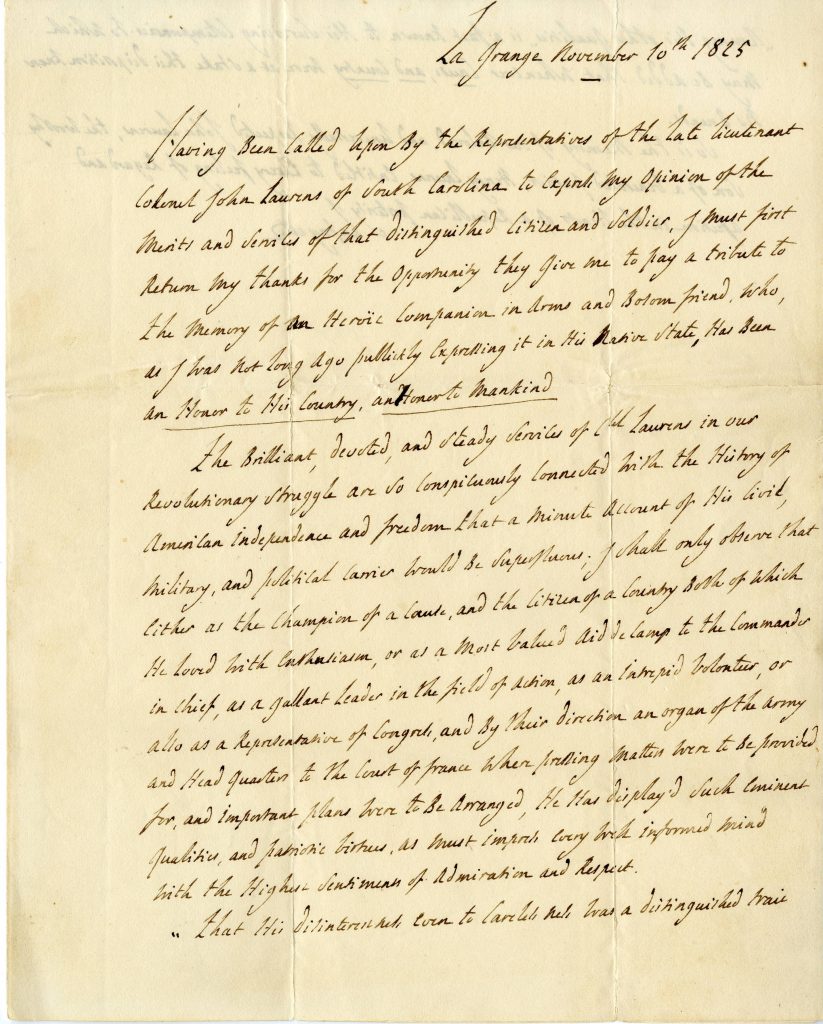 La Grange November 10th 1825
Having Been Called Upon By the Representatives of the late lieutenant
Colonel John Laurens of South Carolina to Express My Opinion of the
Merits and Services of that distinguished Citizen and Soldier, I Must first
Return My thanks for the Opportunity they Give me to pay a tribute to
the Memory of An Heroïc Companion in Arms and Bosom friend, Who,
as I was Not long Ago publickly Expressing it in His Native State, Has Been
an Honor to His Country, an Honor to Mankind
The Brilliant, devoted, and Steady Services of Col Laurens in our
Revolutionary Struggle are So Conspicuously Connected With the History of
American independence and freedom that a Minute Account of His Civil,
Military, and political Carrier Would Be Superfluous; I shall only observe that
Either as the Champion of a Cause, and the Citizen of a Country Both of Which
He loved With Enthusiasm, or as a Most Valued Aid de Camp to the Commander
in Chief, as a gallant Leader in the field of action, as an intrepid Volonteer, or
also as a Representative of Congress, and By their direction an organ of the Army
and Head Quarters to the Court of france Where pressing Matters Were to Be provided
for, and important plans Were to Be Arranged, He Has display'd Such Eminent
Qualities, and patriotic Virtues, as Must impress Every Well informed Mind
With the Highest Sentiments of Admiration and Respect.
„ That His disinterestness Even to Carelessness Was a distinguished trait